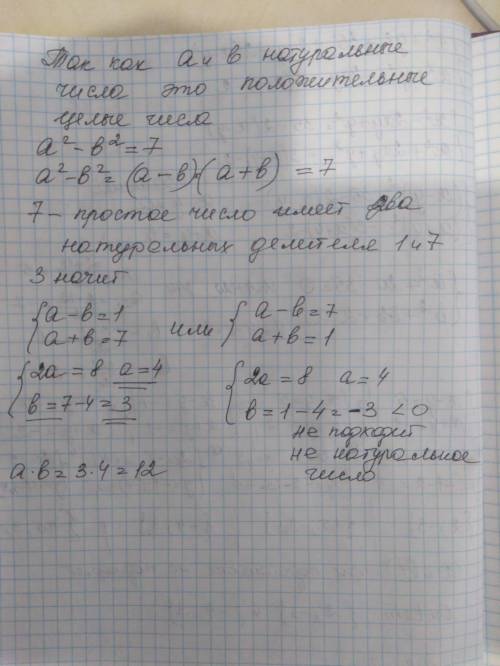 Так как a и в натуральные
числа это положительные
целые числа
a² - в² = 7
a² - в² = (a - в)·(a + в) = 7
7 - простое число имеет два
натуральных делителя 1 и 7
Значит
{ a - в = 1 или { a - в = 7
a + в = 7 a + в = 1
{ 2a = 8 a = 4 { 2a = 8 a = 4
в = 7 - 4 = 3 в = 1 - 4 = -3 < 0
не подходит
не натуральное
число
a · в = 3 · 4 = 12